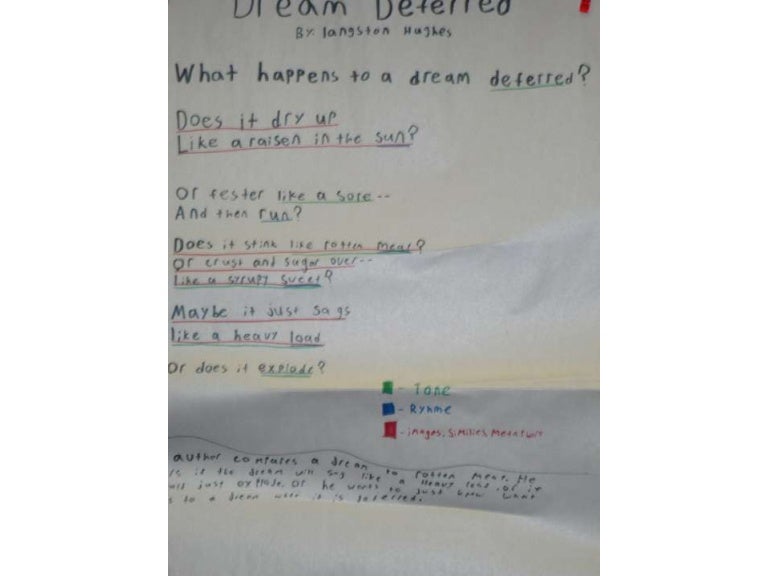 Dream Deferred
By: langston Hughes
What happens to a dream deferred?
Does it dry up
Like a raisen in the sun?
Or fester like a sore--
And then run?
Does it stink like rotten meat?
Or crust and sugar over--
like a syrupy sweet?
Maybe it just sags
like a heavy load
Or does it explode?
- Tone
- Ryhme
- images, similies, metaphors
author compares a dream to rotten meat. He
is if the dream will sag like a heavy load or it
just explode. Or he wants to just know what
s to a dream when it is deferred.